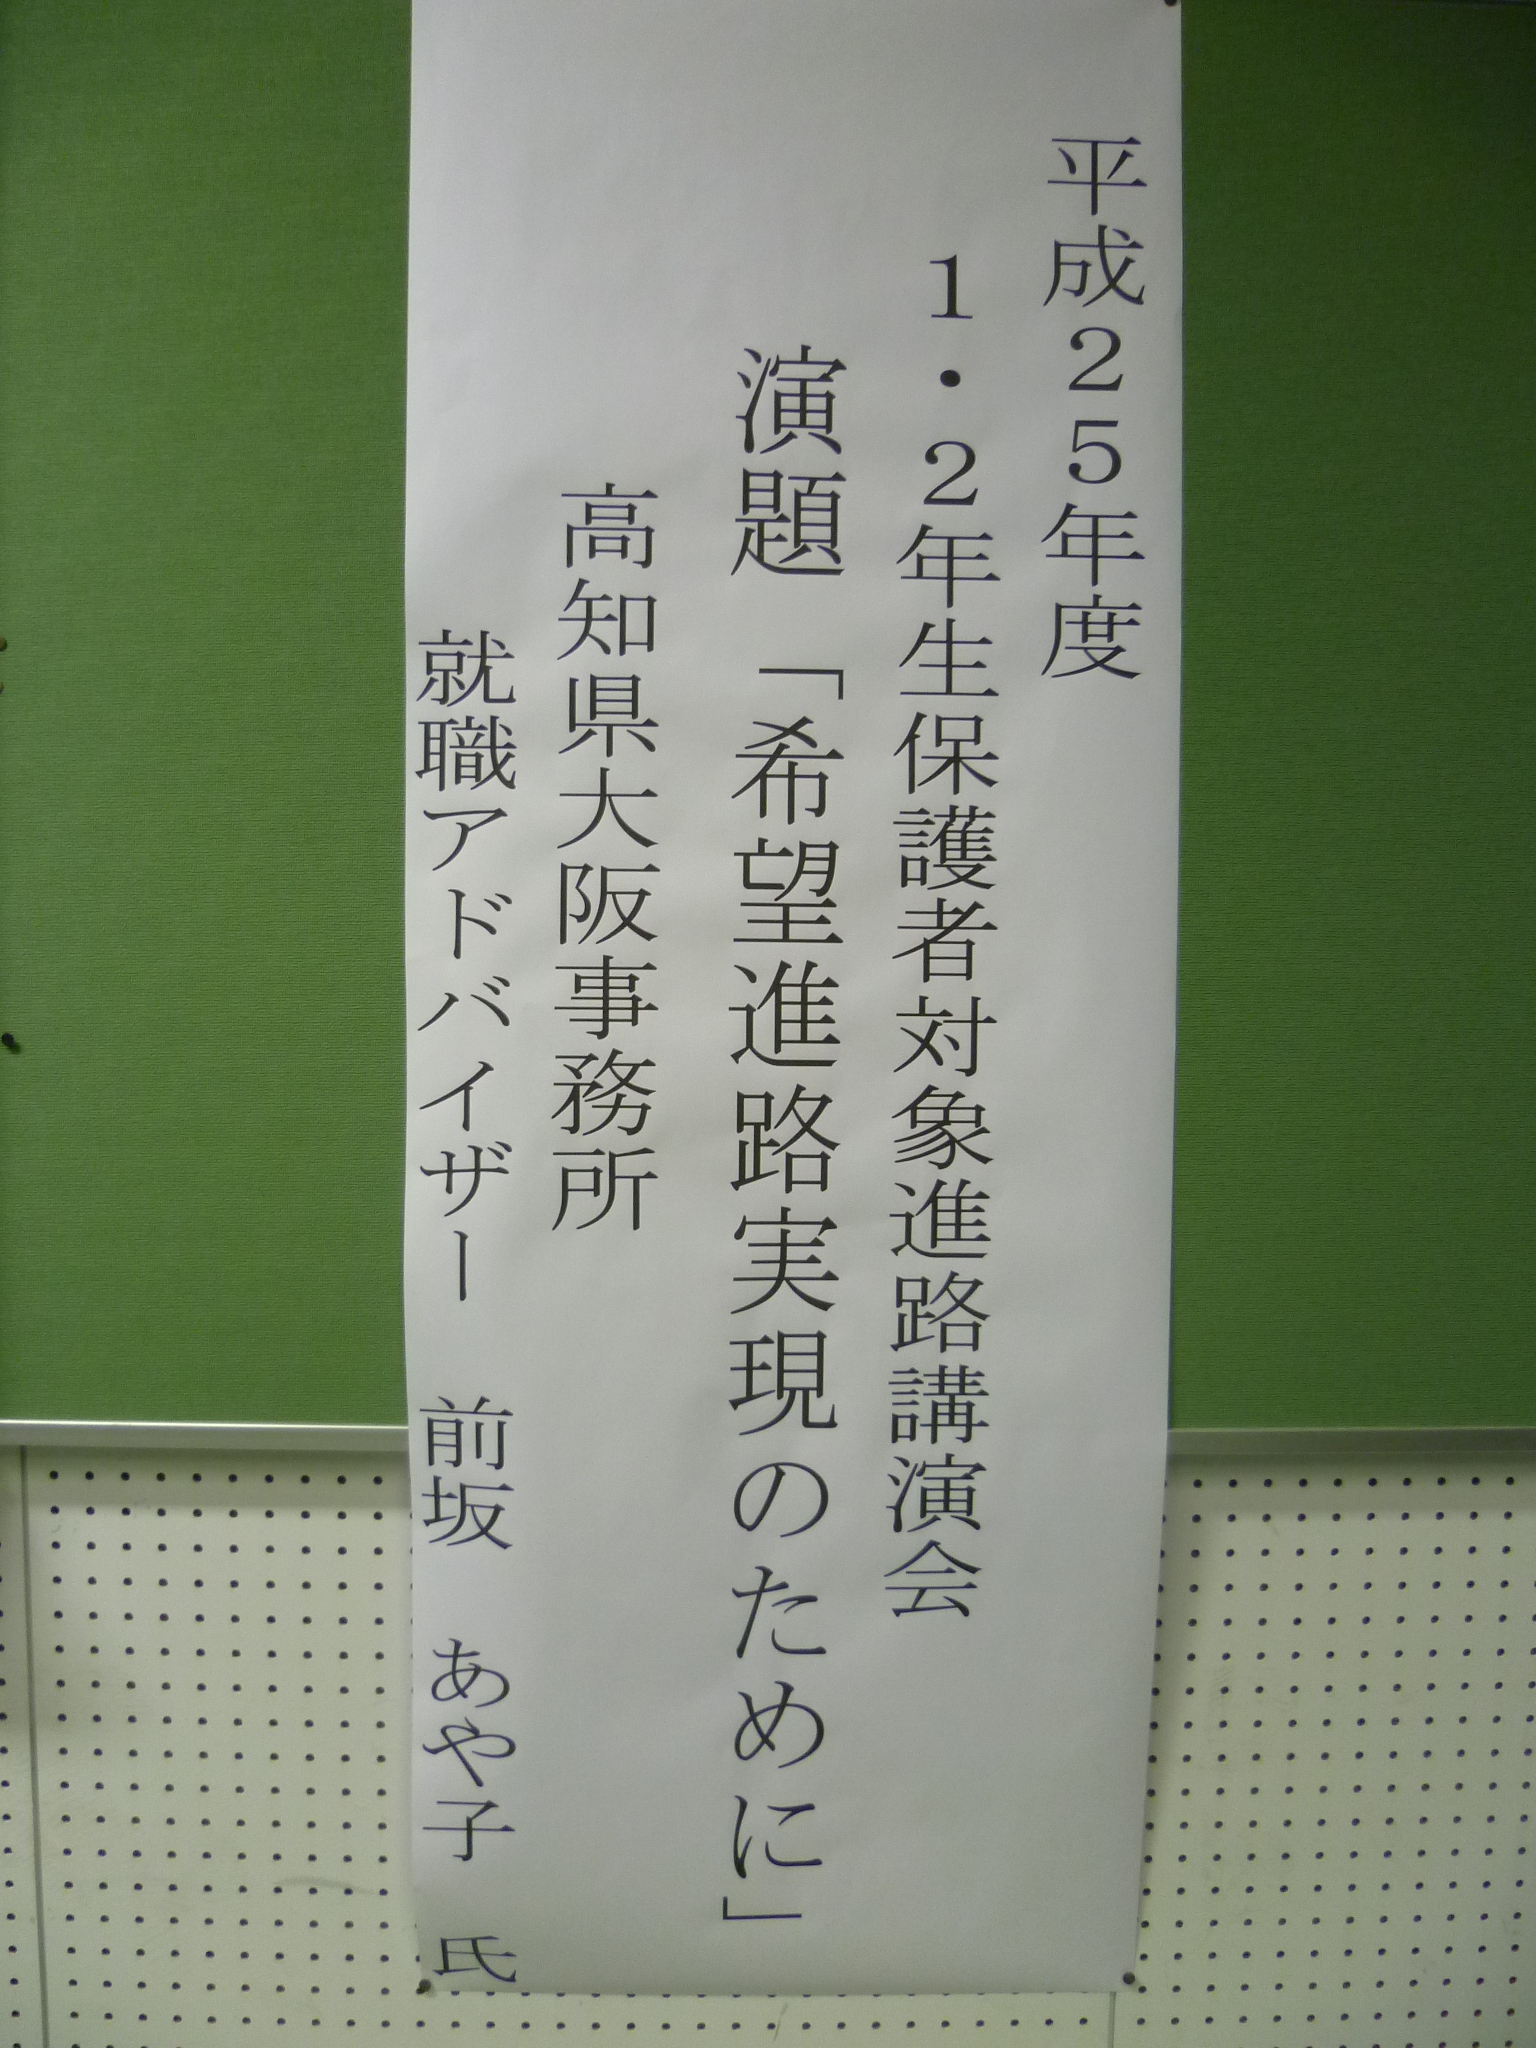 平成２５年度
１・２年生保護者対象進路講演会
演題「希望進路実現のために」
高知県大阪事務所
就職アドバイザー　前坂　あや子　氏